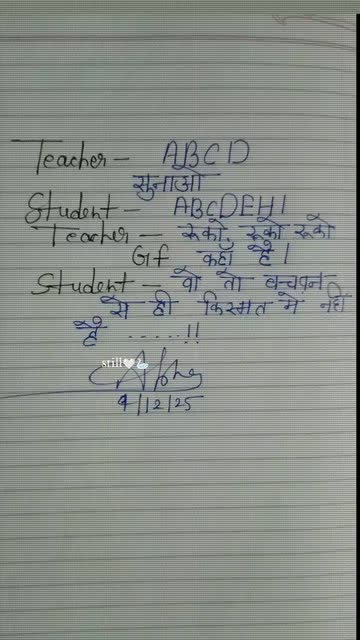 Teacher – ABCD
सुनाओ
Student – ABCDEHI
Teacher – रूको, रूको रूको
Gf कहाँ है।
Student – वो तो बचपन
से ही किस्मत मे नही
है .....!!
still🤍🦢
9/12/25